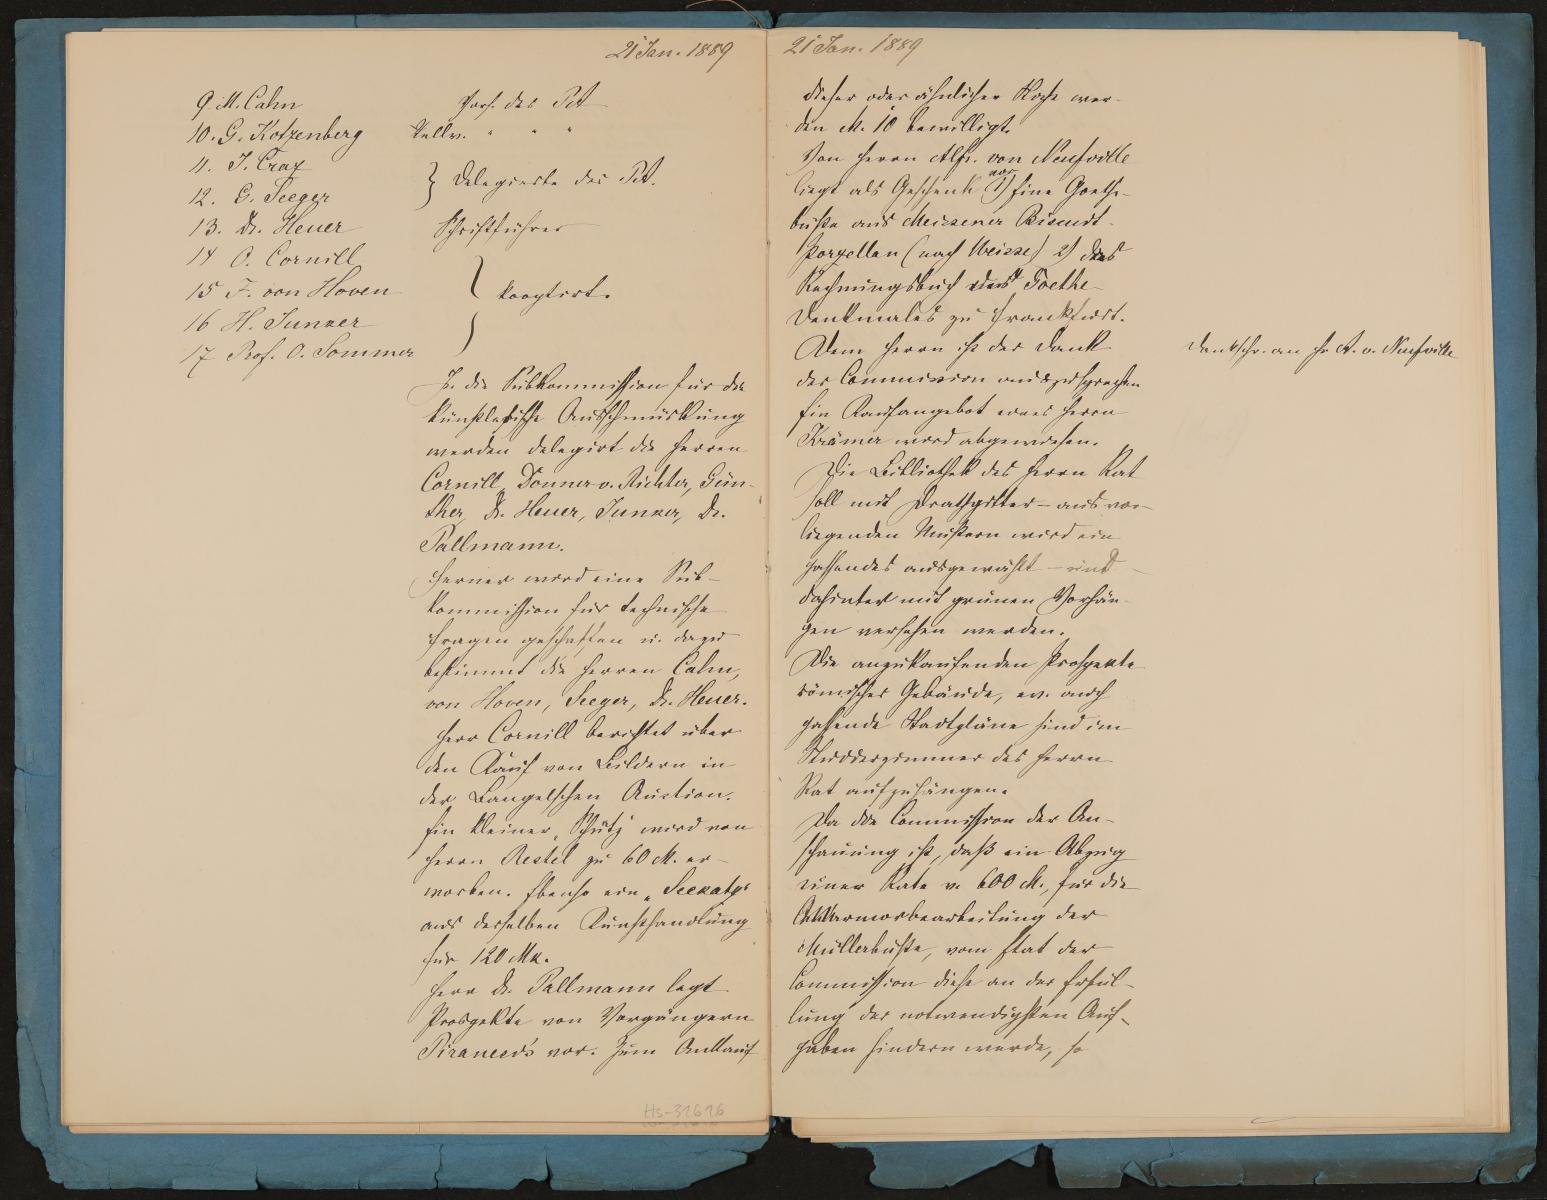 21 Jan. 1889
9 M. Cahn Vors. des PA
10. G. Kotzenberg Stellv. " " "
11. J. Craz
12. E. Seeger } Delegierte des PA.
13. Dr. Heuer Schriftführer
14 O. Cornill
15 F. von Hoven } kooptirt.
16 H. Junker
17 Prof. O. Sommer
In die Subkommission für die
künstlerische Ausschmückung
werden delegirt die Herren
Cornill, Donner v. Richter, Gün-
ther, Dr. Heuer, Junker, Dr.
Pallmann.
Ferner wird eine Sub-
kommission für technische
Fragen geschaffen u. dazu
bestimmt die Herren Cahn,
von Hoven, Seeger, Dr. Heuer.
Herr Cornill berichtet über
den Kauf von Bildern in
der Bangelschen Auction.
Ein kleiner „Schütz" wird von
Herrn Restel zu 60 M. er-
worben. Ebenso ein „Seekatz"
aus derselben Kunsthandlung
für 120 Mk.
Herr Dr. Pallmann legt
Prospekte von Vorgängern
Piranesi's vor. Zum Ankauf
Hs-31616
21 Jan. 1889
dieser oder ähnlicher Stiche wer-
den M. 10 bewilligt.
Von Herrn Alfr. von Neufville
liegt als Geschenk vor 1) Eine Goethe-
büste aus Meissener Biscuit-
porzellan (nach Weisse) 2) das
Rechnungsbuch des Goethe-
denkmales zu Frankfurt.
Dem Herrn ist der Dank
der Commission auszusprechen
Dankschr. an Hr A. v. Neufville
Ein Kaufangebot eines Herrn
Krämer wird abgewiesen.
Die Bibliothek des Herrn Rat
soll mit Drathgitter – aus vor-
liegenden Mustern wird ein
passendes ausgewählt – und
dahinter mit grünen Vorhän-
gen versehen werden.
Die anzukaufenden Prospekte
römischer Gebäude, ev. auch
passende Stadtpläne sind im
Studierzimmer des Herrn
Rat aufzuhängen.
Da die Commission der An-
schauung ist, daß ein Abzug
einer Rate v. 600 M., für die
Marmorbearbeitung der
Müllerbüste, vom Etat der
Commission diese an der Erfül-
lung der notwendigsten Auf-
gaben hindern werde, so